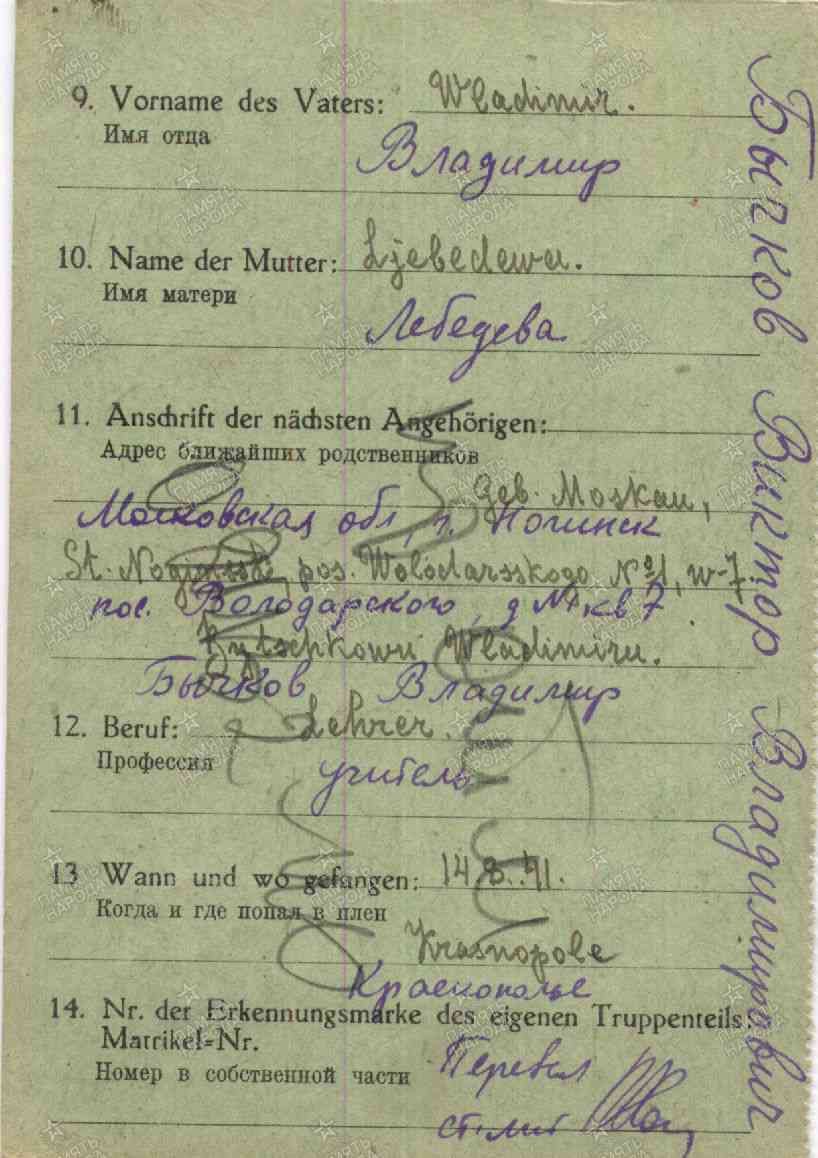 9. Vorname des Vaters: Wladimir.
Имя отца
Владимир
10. Name der Mutter: Ljebedewa.
Имя матери
Лебедева
11. Anschrift der nächsten Angehörigen:
Адрес ближайших родственников
Geb. Moskau,
Московская обл, г. Ногинск
St. Noginsk, pos. Wolodarsskogo № 1, w-7.
пос. Володарского, д №1 кв 7
Bytschkowu Wladimiru.
Бычков Владимир
12. Beruf: Lehrer.
Профессия
учитель
13 Wann und wo gefangen: 14.8.41.
Когда и где попал в плен
Krasnopole
Краснополье
14. Nr. der Erkennungsmarke des eigenen Truppenteils:
Matrikel=Nr.
Номер в собственной части
Перевел
ст. лит
Бычков Виктор Владимирович
ПАМЯТЬ НАРОДА